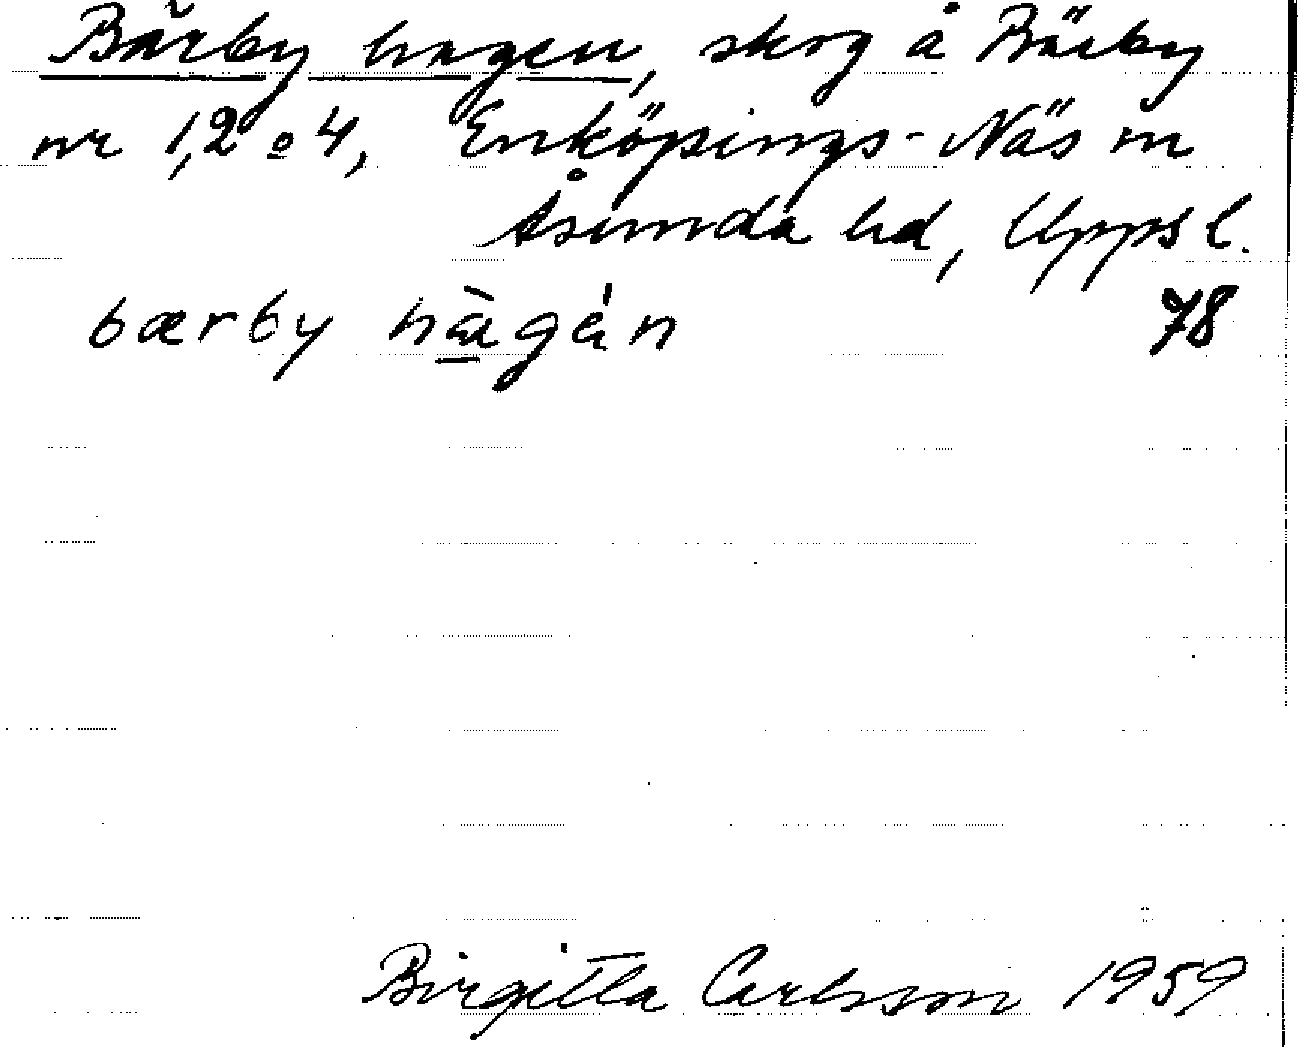 Bärby hagen, skog å Bärby
nr 1,2 o 4, Enköpings-Näs sn
Åsunda hd, Uppsl.
bærby hàgén 78
Birgitta Carlsson 1959